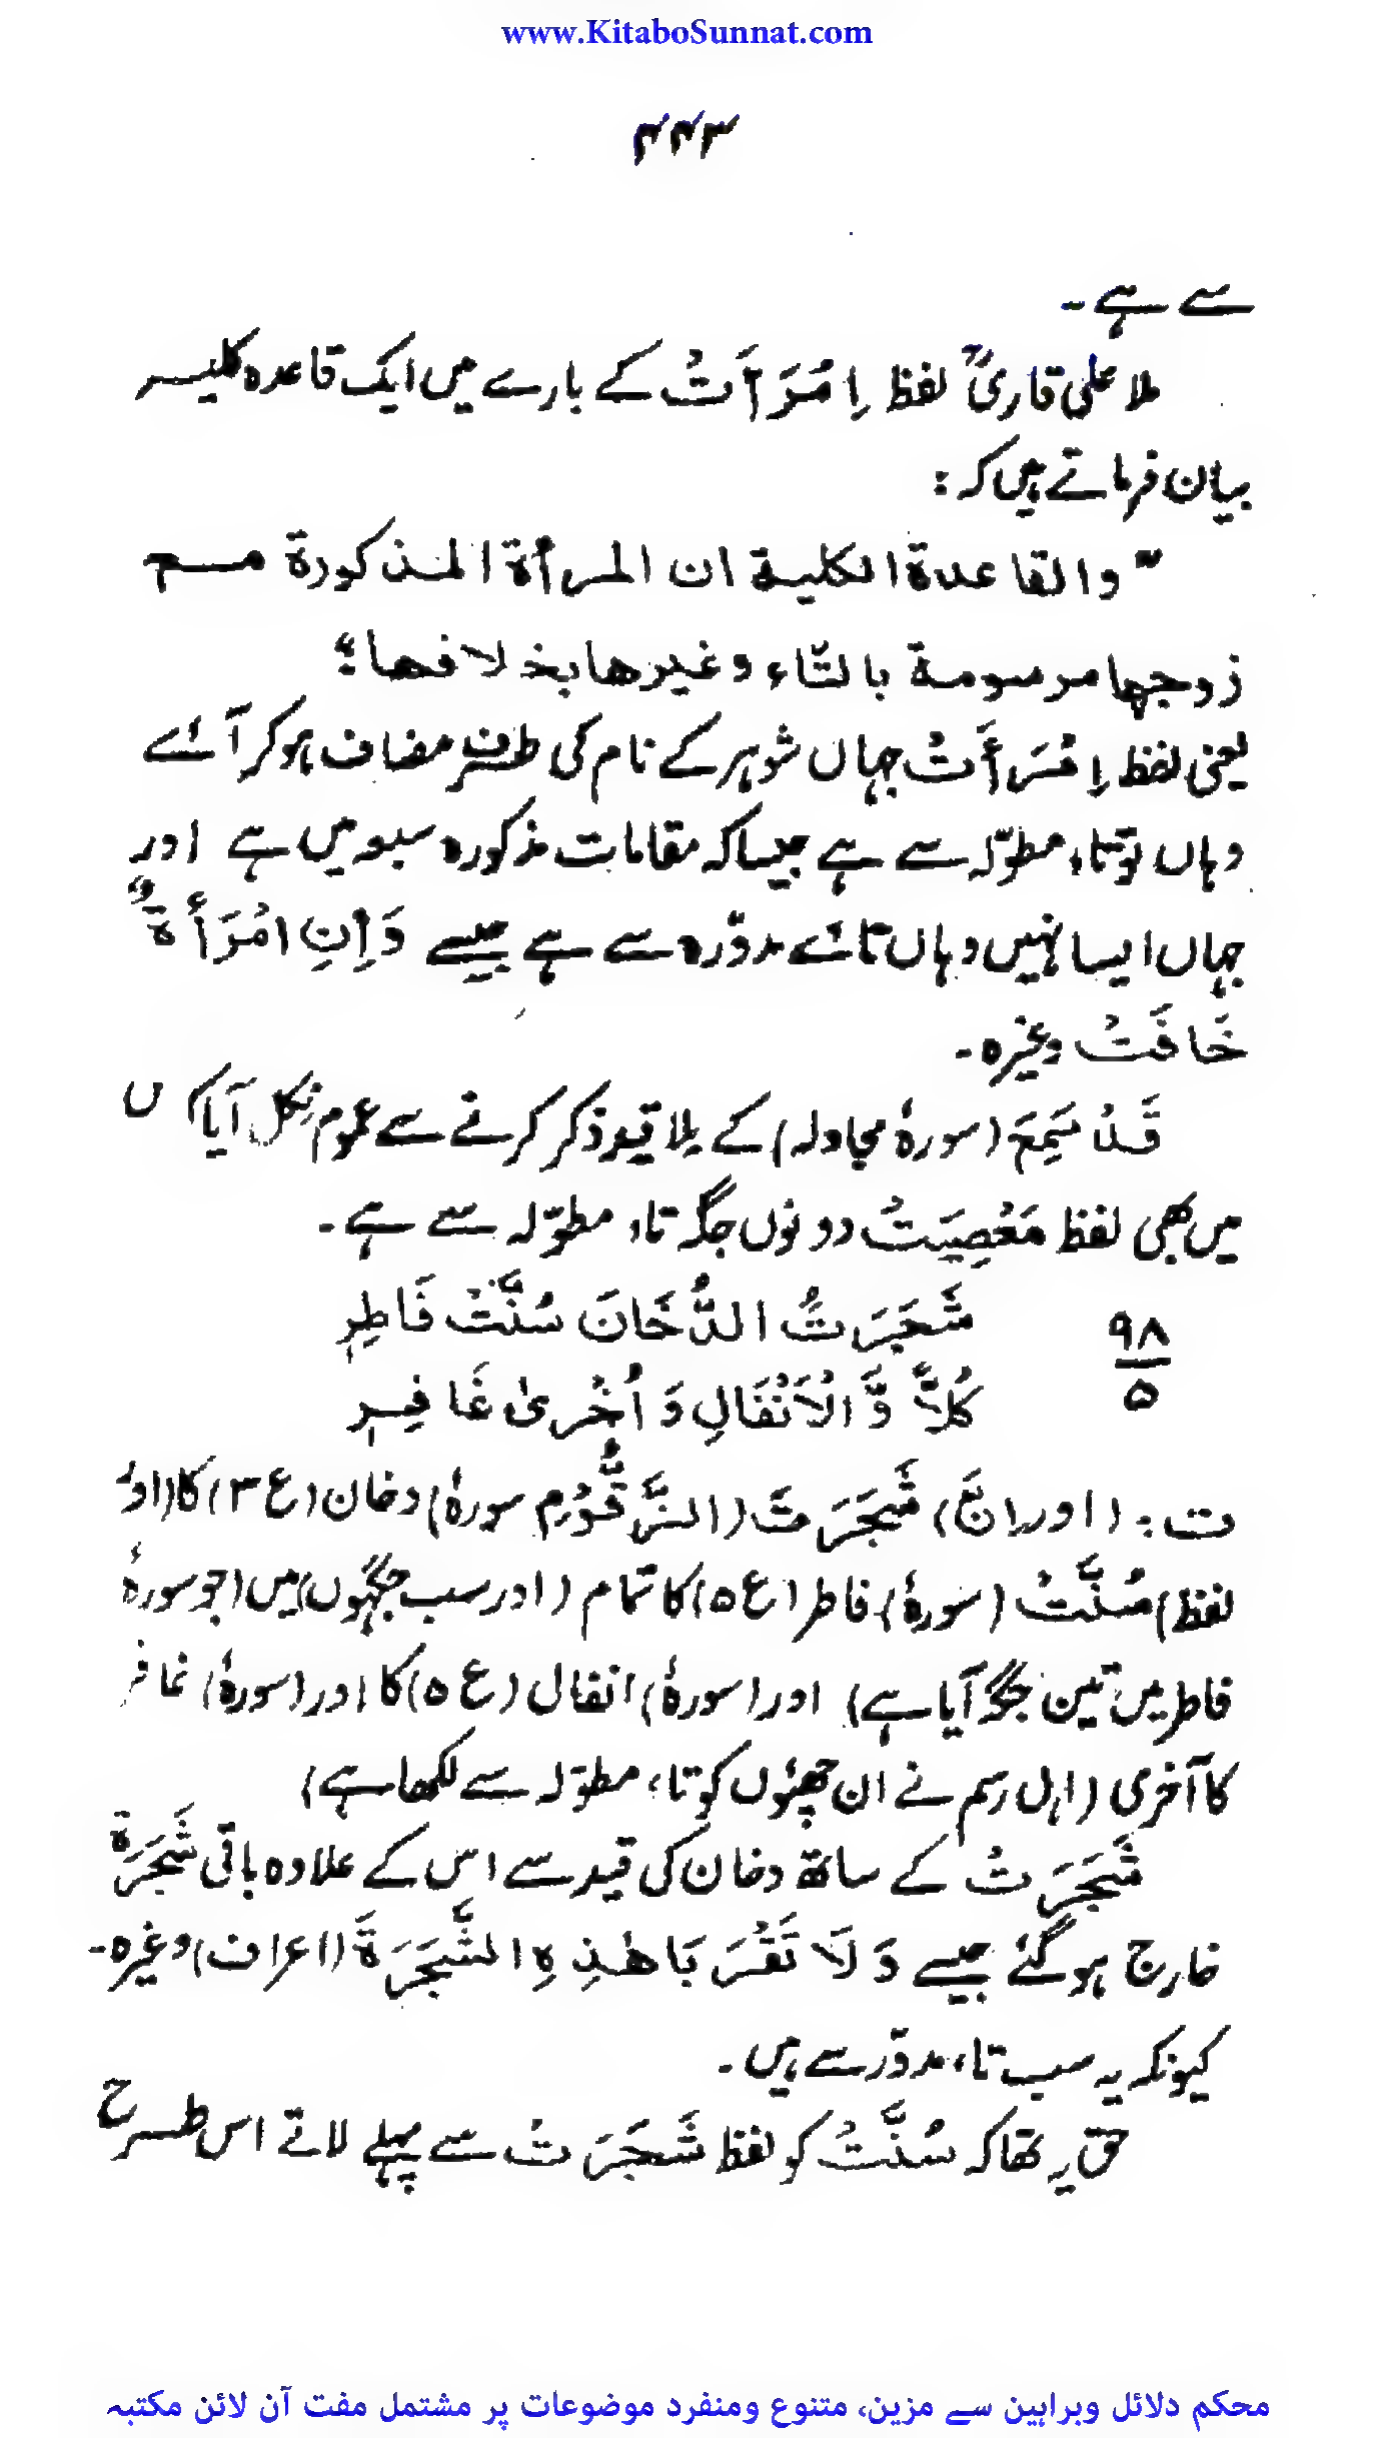 www.KitaboSunnat.com
۴۴۳
سے ہے۔
ملا علی قاریؒ لفظ اِمْرَأَتُ کے بارے میں ایک قاعدہ کلیہ
بیان فرماتے ہیں کہ :
"والقاعدة الكلية ان المرأة المذكورة مع
زوجها مرسومة بالتّاء وغيرها بخلافها"
یعنی لفظ اِمْرَأَتُ جہاں شوہر کے نام کی طرف مضاف ہو کر آئے
وہاں تو تاء مطوّلہ سے ہے جیسا کہ مقامات مذکورہ سبعہ میں ہے اور
جہاں ایسا نہیں وہاں تائے مدوّرہ سے ہے جیسے وَاِنِ امْرَأَةٌ
خَافَتْ وغیرہ۔
قَدْ سَمِعَ (سورۂ مجادلہ) کے بلا قید ذکر کرنے سے عموم نکل آیا کہ اس
میں بھی لفظ مَعْصِيَتْ دونوں جگہ تاء مطوّلہ سے ہے۔
شَجَرَتَ الدُّخَانَ سُنَّتْ فَاطِرِ
۹۸
كُلاًّ وَّالْاَنْفَالِ وَاُخْرىٰ غَافِرِ
۵
ت : (اور اِنَّ) شَجَرَتَ (الزَّقُّوْمِ سورۂ) دخان (ع ۳) کا (اور
لفظ) سُنَّتْ (سورۂ) فاطر (ع ۵) کا تمام (اور سب جگہوں) میں (جو سورۂ
فاطر میں تین جگہ آیا ہے) اور (سورۂ) انفال (ع ۵) کا اور (سورۂ) غافر
کا آخری (اہل رسم نے ان چھئوں کو تاء مطوّلہ سے لکھا ہے)
شَجَرَتْ کے ساتھ دخان کی قید سے اس کے علاوہ باقی شَجَرَة
خارج ہو گئے جیسے وَلَا تَقْرَبَا هٰذِهِ الشَّجَرَةَ (اعراف) وغیرہ۔
کیونکہ یہ سب تاء مدوّر سے ہیں۔
حق یہ تھا کہ سُنَّتْ کو لفظ شَجَرَتْ سے پہلے لاتے اس طرح
محکم دلائل وبراہین سے مزین، متنوع ومنفرد موضوعات پر مشتمل مفت آن لائن مکتبہ